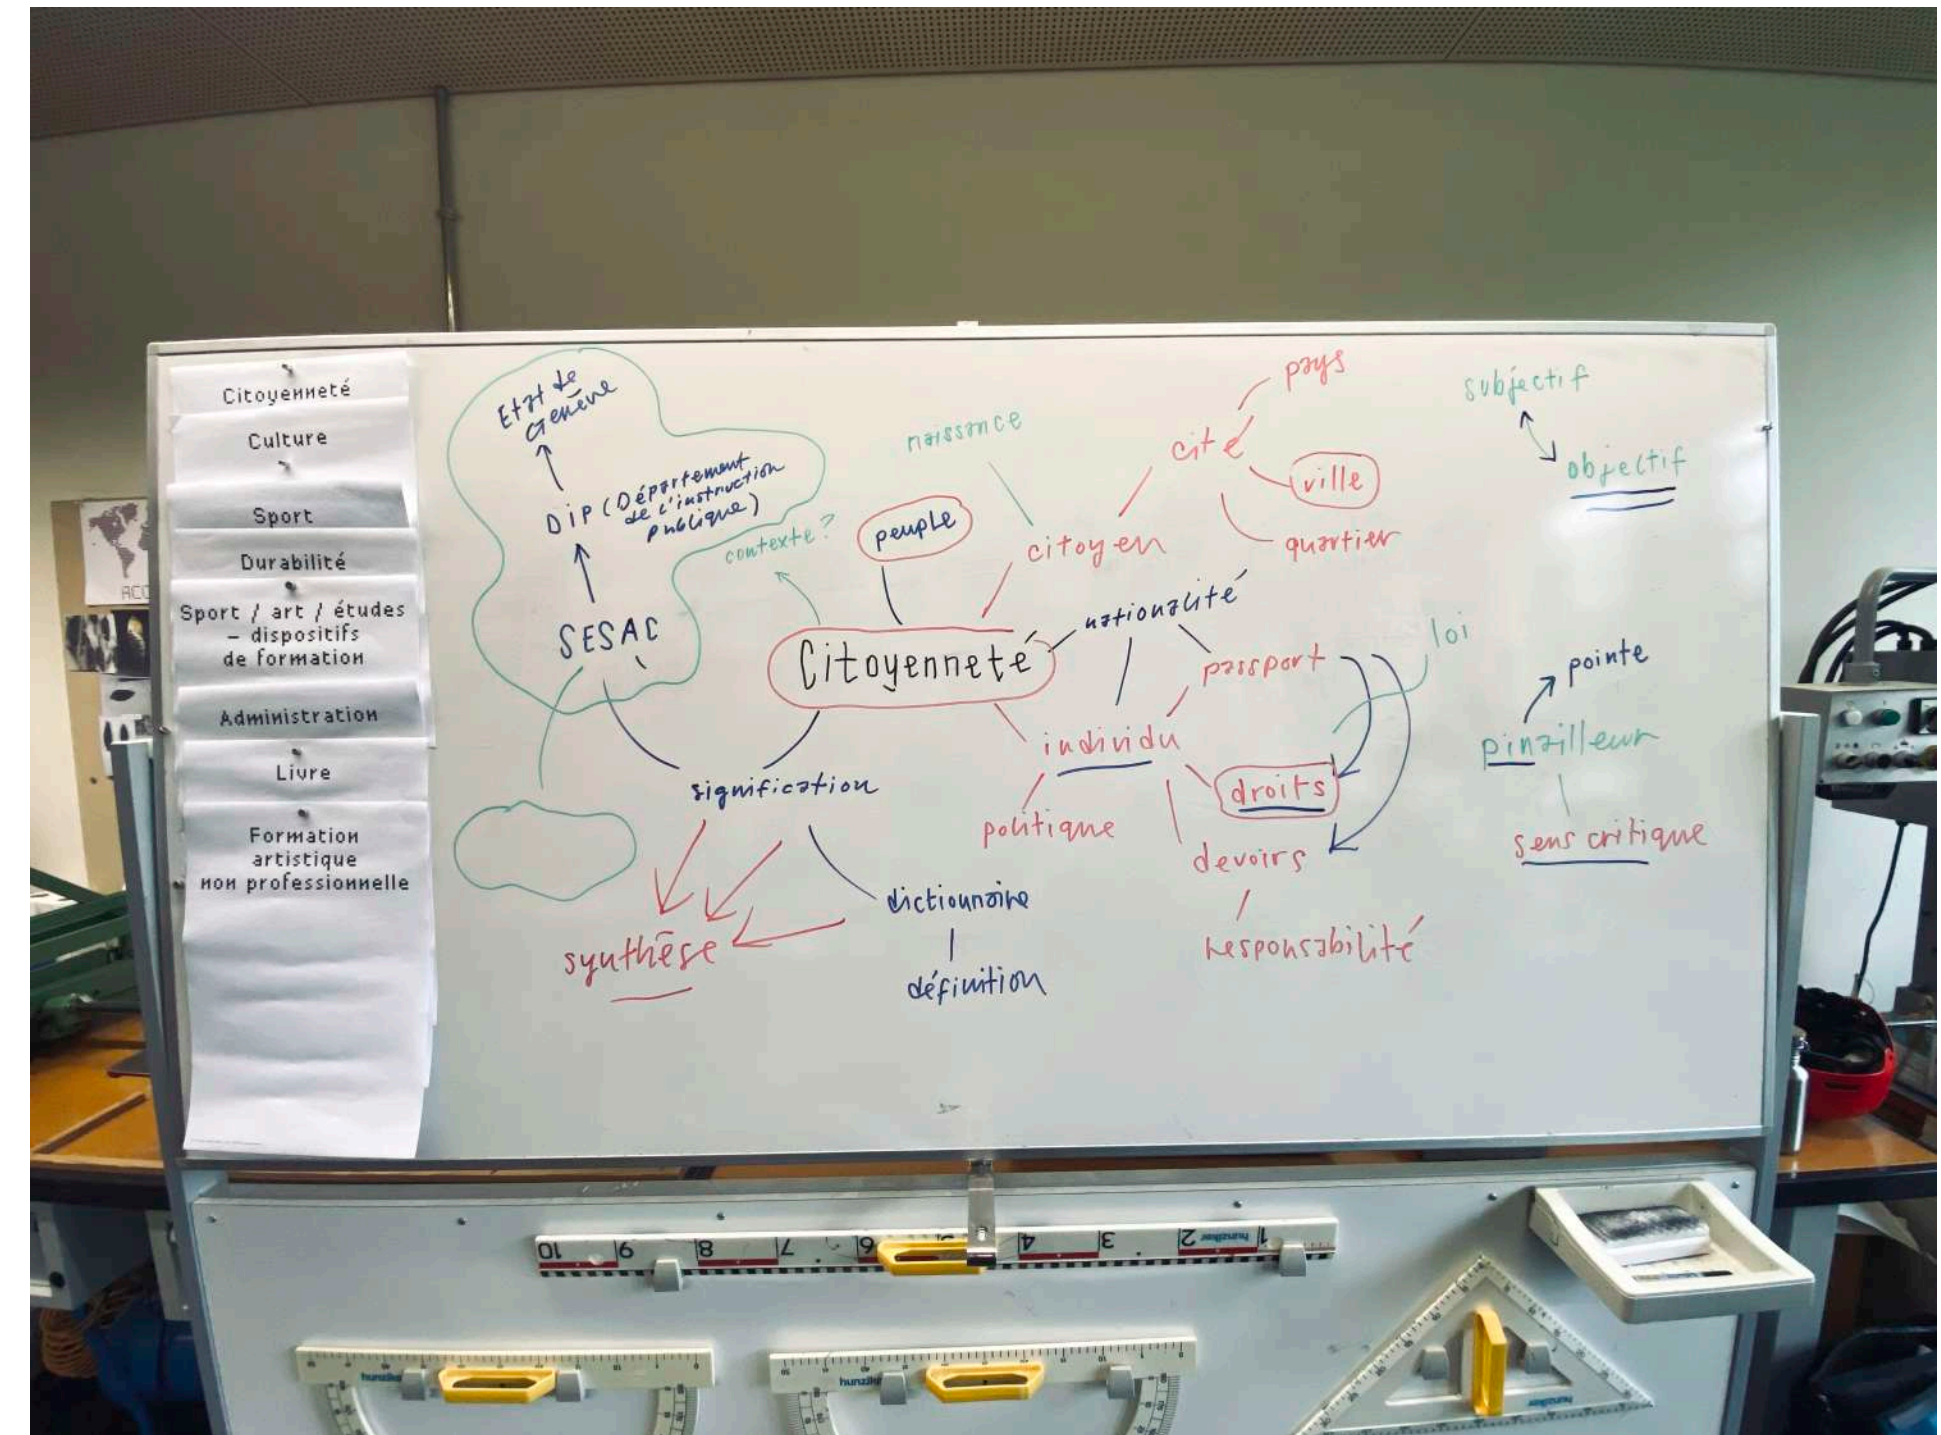 Citoyenneté
Culture
Sport
Durabilité
Sport / art / études
– dispositifs
de formation
Administration
Livre
Formation
artistique
non professionnelle
Etat de
Genève
DiP (Département
de l'instruction
publique)
SESAC
contexte ?
naissance
peuple
Citoyenneté
citoyen
cité
pays
ville
quartier
nationalité
passport
loi
individu
droits
politique
devoirs
responsabilité
signification
synthèse
dictionnaire
définition
subjectif
objectif
pointe
pinailleur
sens critique
ACC
10 9 8 7 6 5 4 3 2 1
hunziker
hunziker
hunziker
hunziker